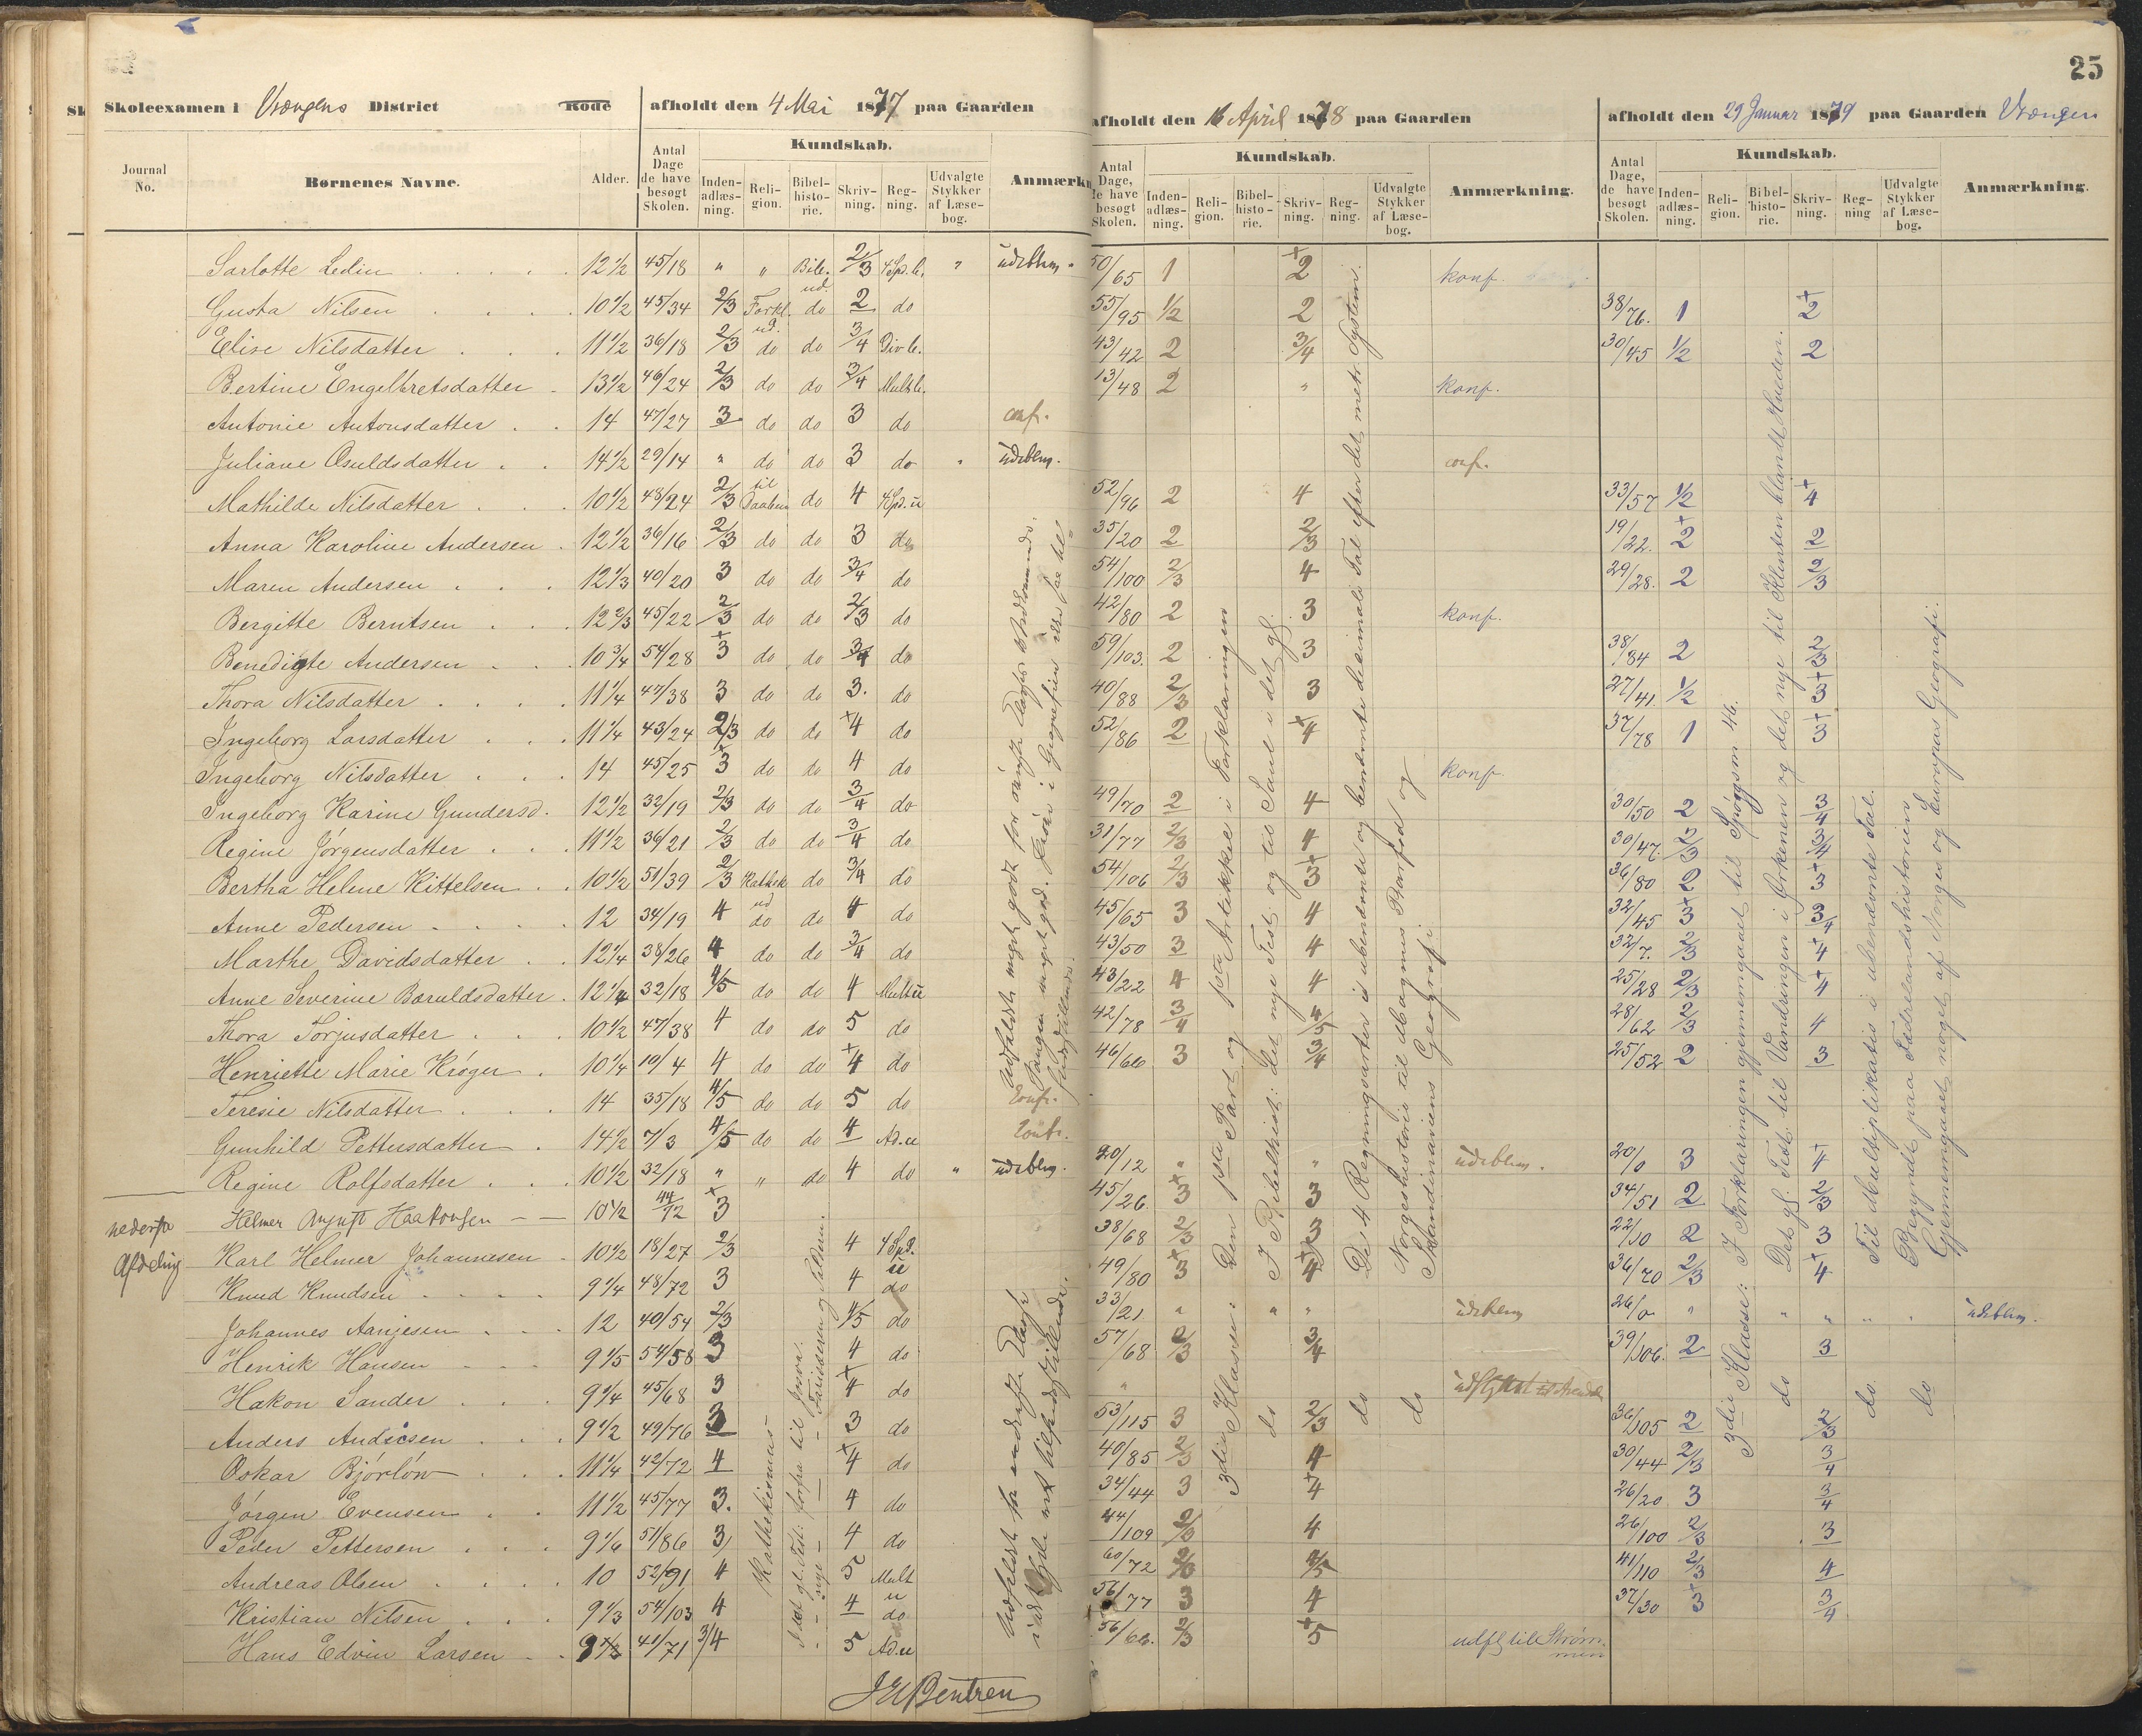 25
Skoleexamen i Vrængens District Rode afholdt den 4 Mai 1877 paa Gaarden
afholdt den 16 April 1878 paa Gaarden
afholdt den 29 Januar 1879 paa Gaarden Vrængen
Journal No. Børnenes Navne. Alder. Antal Dage de have besøgt Skolen. Kundskab. Inden-adlæs-ning. Reli-gion. Bibel-histo-rie. Skriv-ning. Reg-ning. Udvalgte Stykker af Læse-bog. Anmærkn
Antal Dage, de have besøgt Skolen. Kundskab. Inden-adlæs-ning. Reli-gion. Bibel-histo-rie. Skriv-ning. Reg-ning. Udvalgte Stykker af Læse-bog. Anmærkning.
Antal Dage, de have besøgt Skolen. Kundskab. Inden-adlæs-ning. Reli-gion. Bibel-histo-rie. Skriv-ning. Reg-ning Udvalgte Stykker af Læse-bog. Anmærkning.
Sarlotte Ledin 12 1/2 45/18 " " Bib. 2/3 4 Sp. b. " udebleven 50/65 1 2 konf.
Gusta Nilsen 10 1/2 45/34 2/3 Forkl. do 2 do 55/95 1/2 2 38/76. 1 2
Elise Nilsdatter 11 1/2 36/18 2/3 do do 3/4 Div b. 43/42 2 3/4 30/45 1/2 2
Bertine Engelbretsdatter 13 1/2 46/24 2/3 do do 3/4 Mult b. 13/48 2 " konf.
Antonie Antonsdatter 14 47/27 3 do do 3 do conf.
Juliane Osuldsdatter 14 1/2 29/14 " do do 3 do " udeblev. conf.
Mathilde Nilsdatter 10 1/2 48/24 2/3 do 4 4 Sp. u 52/96 2 4 33/57 1/2 4
Anna Karoline Andersen 12 1/2 36/16 2/3 do do 3 do 35/20 2 2/3 19/22. 2 2
Maren Andersen 12 1/3 40/20 3 do do 3/4 do 54/100 2/3 4 29/28. 2 2/3
Bergitte Berntsen 12 2/3 45/22 2/3 do do 2/3 do 42/80 2 3 konf.
Benedigte Andersen 10 3/4 54/28 3 do do 3/4 do 59/103. 2 3 38/84 2 2/3
Thora Nilsdatter 11 1/4 47/38 3 do do 3. do 40/88 2/3 3 27/41. 1/2 3
Ingeborg Larsdatter 11 1/4 43/24 2/3 do do 4 do 52/86 2 4 37/78 1 3
Ingeborg Nilsdatter 14 45/25 3 do do 4 do konf.
Ingeborg Karine Gundersd. 12 1/2 32/19 2/3 do do 3/4 do 49/70 2 4 30/50 2 3/4
Regine Jørgensdatter 11 1/2 36/21 2/3 do do 3/4 do 31/77 2/3 4 30/47. 2/3 3/4
Bertha Helene Kittelsen 10 1/2 51/39 2/3 Kathek do 3/4 do 54/106 2/3 3 36/80 2 3
Anne Pedersen 12 34/19 4 do do 4 do 45/65 3 4 32/45 3 3/4
Marthe Davidsdatter 12 1/4 38/26 4 do do 3/4 do 43/50 3 4 32/7. 2/3 4
Anne Severine Baruldsdatter 12 1/4 32/18 4/5 do do 4 Mult u 43/22 4 4 25/28 2/3 4
Thora Torjusdatter 10 1/2 47/38 4 do do 5 do 42/78 3/4 4/5 28/62 2/3 4
Henriette Marie Krøger 10 1/4 10/4 4 do do 4 do 46/60 3 3/4 25/52 2 3
Teresie Nilsdatter 14 35/18 4/5 do do 5 do Conf.
Gunhild Pettersdatter 14 1/2 7/3 4/5 do do 4 Ad. u Conf.
Regine Rolfsdatter 10 1/2 32/18 " " do 4 do " udeblev. 20/12 " " udeblev. 20/0 3 4
nederste Afdeling
Helmer August Haakonsen 10 1/2 44/72 3 45/26. 3 3 34/51 2 2/3
Karl Helmer Johannesen 10 1/2 18/27 2/3 4 4 Sp. u 38/68 2/3 3 22/10 2 3
Knud Knudsen 9 1/4 48/72 3 4 do 49/80 3 4 36/70 2/3 4
Johannes Aanjesen 12 40/54 2/3 4/5 do 33/21 " " " udeblev 26/0 " " " " " udeblev.
Henrik Hansen 9 1/5 54/58 3 4 do 57/68 2/3 3/4 39/106. 2 3
Hakon Sander 9 1/4 45/68 3 4 do " udflyttet til Arendal
Anders Andersen 9 1/2 49/76 3 3 do 53/115 3 2/3 36/105 2 2/3
Oskar Bjørløw 11 1/4 42/72 4 4 do 40/85 2/3 4 30/44 2/3 3/4
Jørgen Evensen 11 1/2 45/77 3. 4 do 34/44 3 4 26/20 3 3/4
Peder Pettersen 9 1/6 51/86 3 4 do 44/109 2/3 4 26/100 2/3 3
Andreas Olsen 10 52/91 4 5 Mult u 60/72 2/3 4/5 41/110 2/3 4
Kristian Nilsen 9 1/3 54/103 4 4 do 56/77 3 4 37/30 3 3/4
Hans Edvin Larsen 41/71 3/4 5 Ad. u 56/66. 2/3 5 udfl til Strømmen
Kathekismus
Den 1ste Part og 1ste Artikkel i Forklaringen
I Bibelhist: det nye Test. og til Saul i det gl.
De 4 Regningsarter i ubenævnte og benævnte decimale Tal efter det metr. System.
Norgeshistorie til Magnus Barfod og
Skandinaviens Geografi
3die Klasse: do do do
3die Klasse: I Forklaringen gjennemgaaet til Spørgsm 46.
Det gl. Test: til Vandringen i Ørkenen og det nye til Klinten blandt Hveden.
Til Multiplikation i ubenævnte Tal.
Begyndt paa Fædrelandshistorien
Gjennemgaaet noget af Norges og Europas Geografi.
do do do